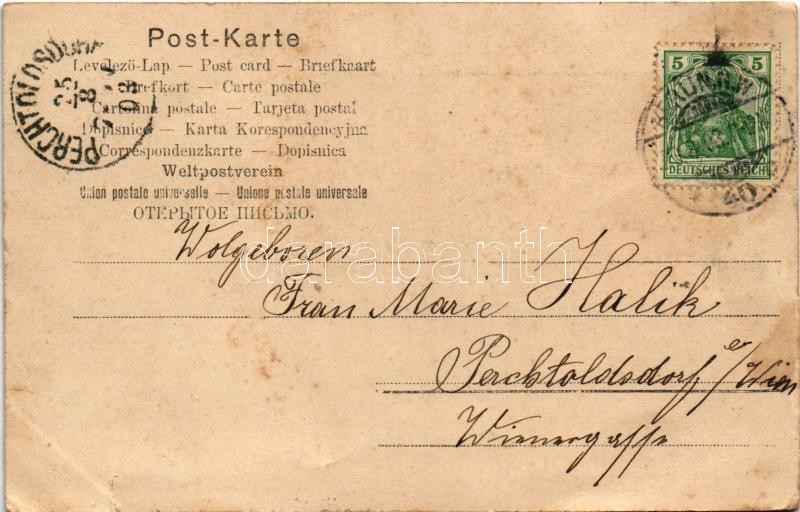 Post-Karte
Levelező-Lap — Post card — Briefkaart
Brefkort — Carte postale
Cartolina postale — Tarjeta postal
Dopisnice — Karta Korespondencyjna
Correspondenzkarte — Dopisnica
Weltpostverein
Union postale universelle — Unione postale universale
ОТКРЫТОЕ ПИСЬМО.
PERCHTOLDSDORF
25
8
03
5 5
DEUTSCHES REICH
BERLIN N.W.
40
Wolgeboren
Frau Marie Halik
Perchtoldsdorf b/Wien
Wienergasse
darabanth